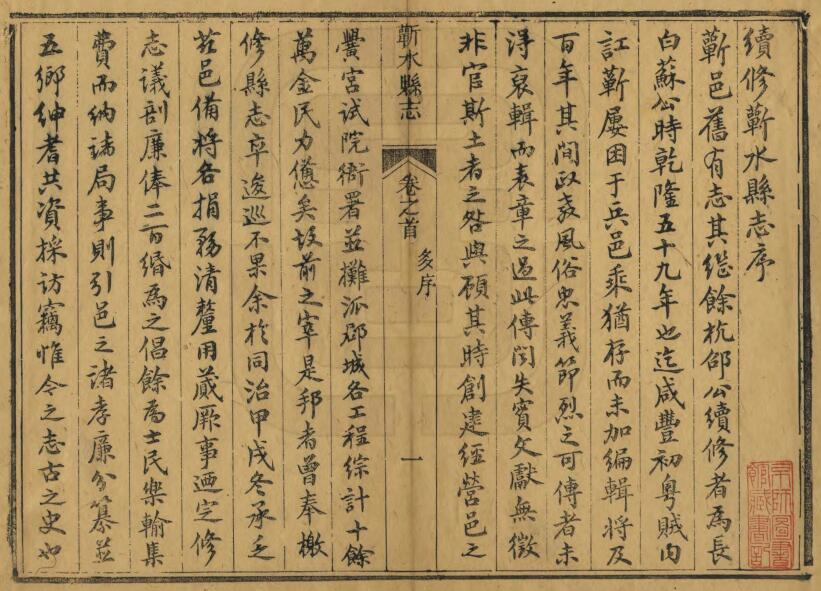 續修蘄水縣志序
蘄邑舊有志其繼餘杭邵公續修者為長
白蘇公時乾隆五十九年也迄咸豐初粵賊內
訌蘄屢困于兵邑乘猶存而未加編輯將及
百年其間政教風俗忠義節烈之可傳者未
得裒輯而表章之過此傳聞失實文獻無徵
非官斯土者之咎與顧其時創建經營邑之
蘄水縣志
卷之首
多序
一
黌宮試院衙署並攤派郡城各工程綜計十餘
萬金民力憊矣故前之宰是邦者曾奉檄
修縣志卒逡巡不果余於同治甲戌冬承乏
茲邑備將各捐務清釐用蕆厥事迺定修
志議割廉俸二百緡為之倡餘為士民樂輸集
費而納諸局事則引邑之諸孝廉分纂並
五鄉紳耆共資採訪竊惟今之志古之史也
京師圖書
館藏書記